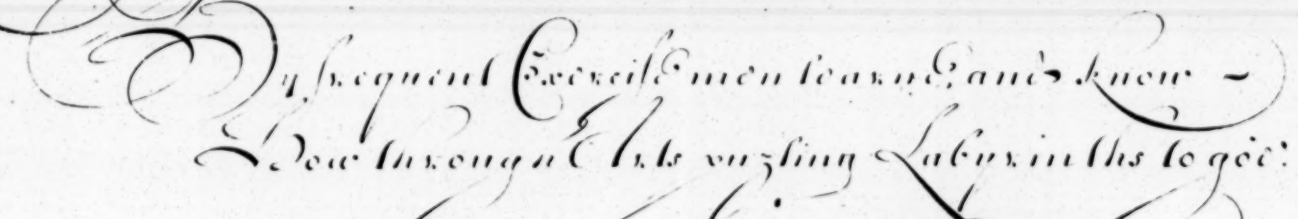 By frequent Exercise men learne and know
How through Arts puzling Labyrinths to goe: